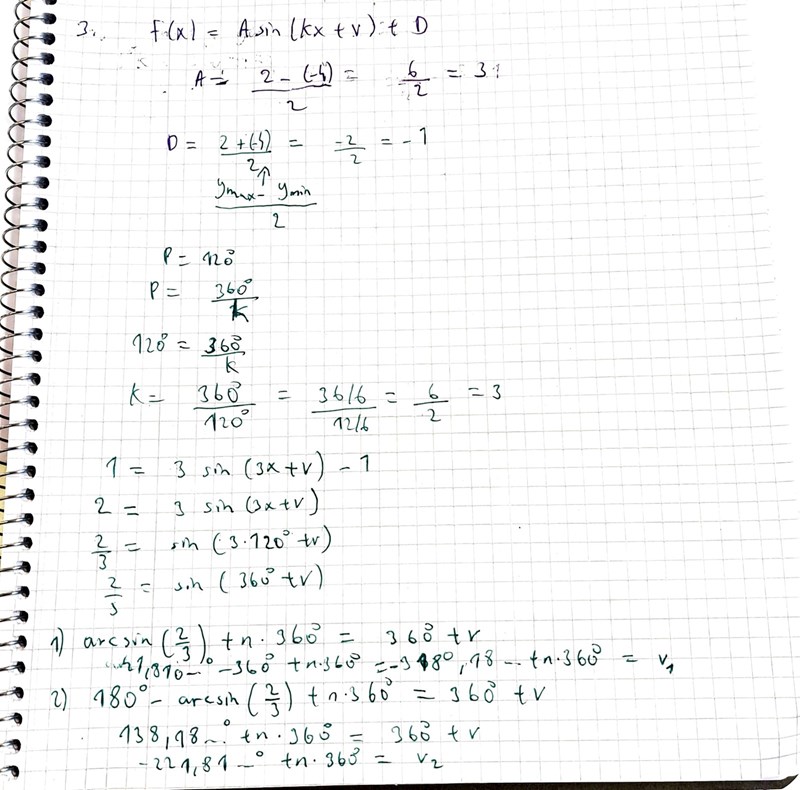 3. F(x) = A sin (kx + v) + D
A = (2 - (-4))/2 = 6/2 = 3
D = (2 + (-4))/2 = -2/2 = -1
↑
(ymax - ymin)/2
P = 120°
P = 360°/k
120° = 360°/k
K = 360°/120° = 36/6/12/6 = 6/2 = 3
1 = 3 sin (3x + v) - 1
2 = 3 sin (3x + v)
2/3 = sin (3·120° + v)
2/3 = sin (360° + v)
1) arcsin (2/3) + n·360° = 360° + v
41,810...° - 360° + n·360° = -318°,18... + n·360° = v₁
2) 180° - arcsin (2/3) + n·360° = 360° + v
138,18...° + n·360° = 360° + v
-221,81...° + n·360° = v₂